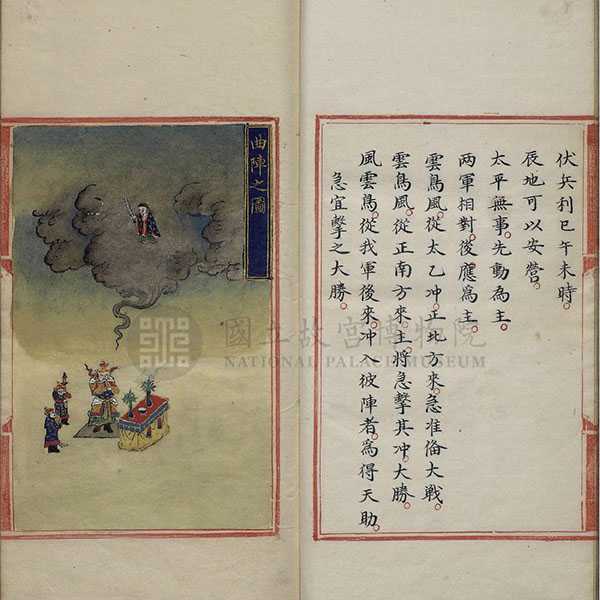 伏兵利巳午未時。
辰地可以安營。
太平無事。先動為主。
两軍相對。後應為主。
雲鳥風。從太乙冲。正北方來。急准俻大戰。
雲鳥風。從正南方來。主將急擊其冲。大勝。
風雲鳥。從我軍後來。冲入彼陣者。為得天助。
急宜擊之大勝。
曲陣之圖
國立故宮博物院
NATIONAL PALACE MUSEUM